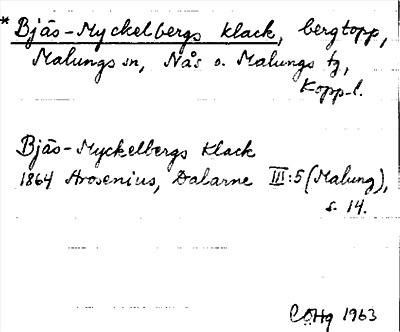 * Bjäs-Myckelbergs klack, bergtopp,
Malungs sn, Nås o. Malungs tg,
Kopp. l.
Bjäs-Myckelbergs Klack
1864 Arosenius, Dalarne III:5 (Malung),
s. 14.
CÖHg 1963